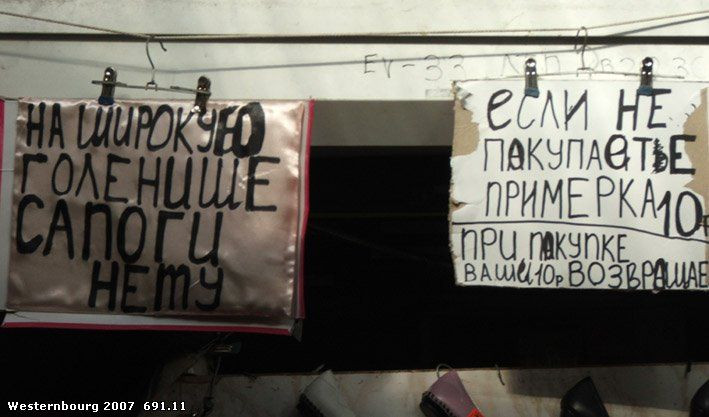 НА ШИРОКУЮ
ГОЛЕНИЩЕ
САПОГИ
НЕТУ
EV-33
еСЛИ НЕ
ПАКУПАеТЕ
ПРИМЕРКА 10р
ПРИ ПАКУПКЕ
ВАШИ 10р ВОЗВРАЩАЕ
Westernbourg 2007 691.11